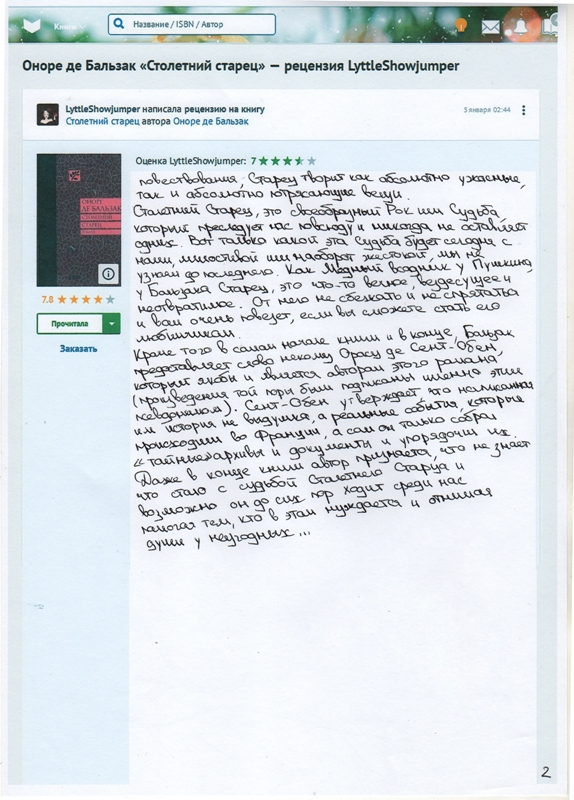 Книги
Название / ISBN / Автор
Оноре де Бальзак «Столетний старец» — рецензия LyttleShowjumper
LyttleShowjumper написала рецензию на книгу
Столетний старец автора Оноре де Бальзак
3 января 02:44
ОНОРЕ
ДЕ БАЛЬЗАК
СТОЛЕТНИЙ
СТАРЕЦ
7.8
Прочитала
Заказать
Оценка LyttleShowjumper: 7
повествования, Старец творит как абсолютно ужасные,
так и абсолютно потрясающие вещи.
Столетний Старец, это своеобразный Рок или Судьба,
который преследует нас повсюду и никогда не оставляет
одних. Вот только какой эта Судьба будет сегодня с
нами, милостивой или наоборот жестокой, мы не
узнаем до последнего. Как Медный всадник у Пушкина,
у Бальзака Старец, это что-то вечное, вездесущее и
неотвратимое. От него не сбежать и не спрятаться
и вам очень повезет, если вы сможете стать его
любимчиком.
Кроме того в самом начале книги и в конце, Бальзак
предоставляет слово некому Орасу де Сент-Обен,
который якобы и является автором этого романа,
(произведения той поры были подписаны именно этим
псевдонимом). Сент-Обен утверждает, что написанная
им история не выдумка, а реальные события, которые
происходили во Франции, а сам он только собрал
«тайные» архивы и документы и упорядочил их.
Даже в конце книги автор признается, что не знает
что стало с судьбой Столетнего Старца и
возможно он до сих пор ходит среди нас
помогая тем, кто в этом нуждается и отнимая
души у неугодных...
2